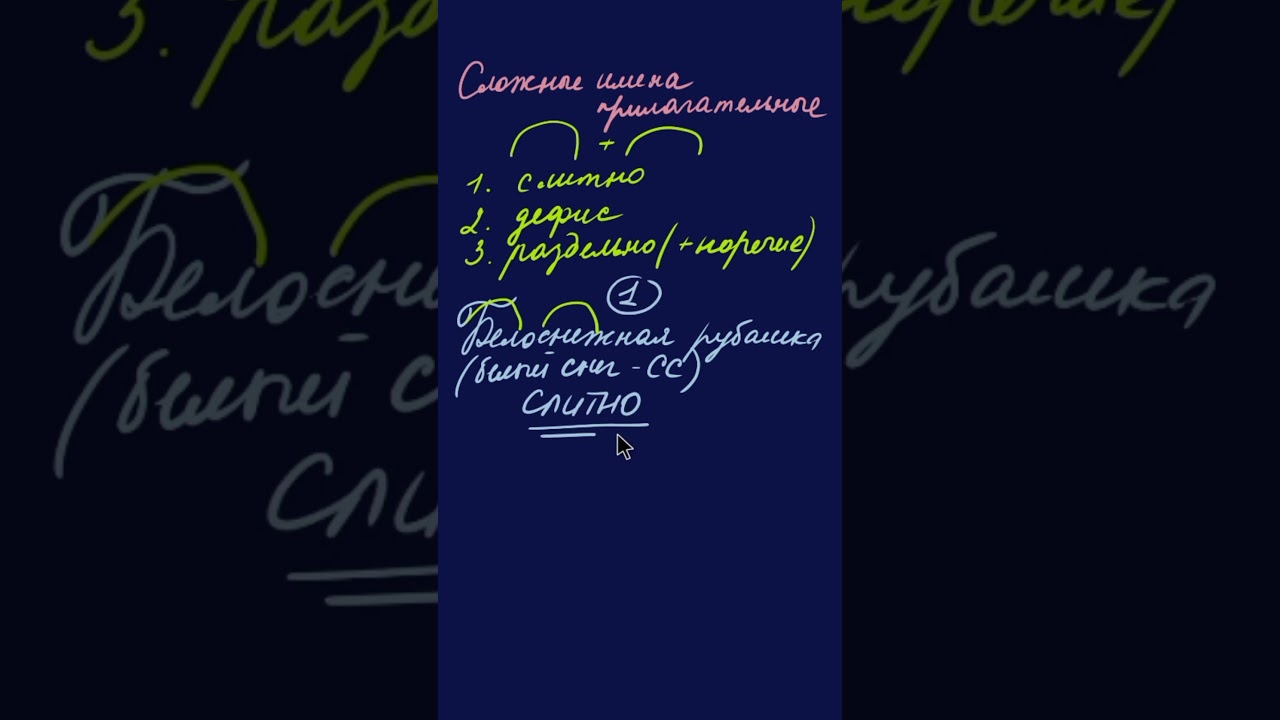 Сложные имена
прилагательные
+
1. слитно
2. дефис
3. раздельно (+наречие)
1
Белоснежная рубашка
(белый снег - СС)
СЛИТНО